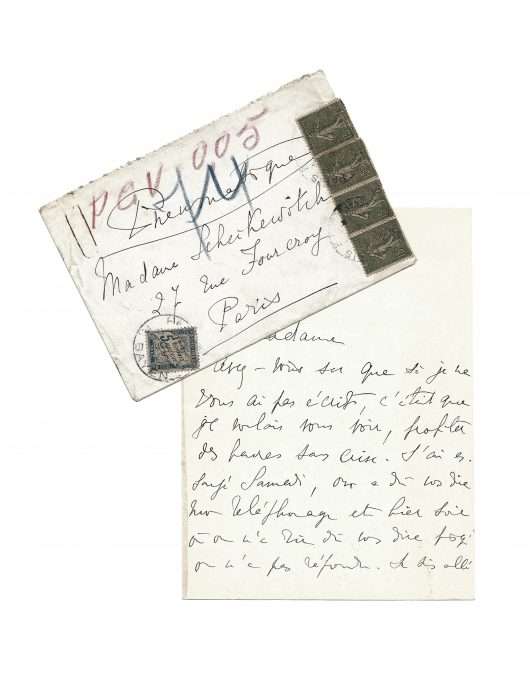 PGV 005
14
Pneumatique
Madame Scheikévitch
27 rue Fourcroy
Paris
Madame
Avez-vous su que si je ne
vous ai pas écrit, c'était que
je voulais vous voir, profiter
des heures sans crise. J'ai es-
sayé Samedi, on a dû vous dire
mon téléphonage et hier soir
où on n'a rien dû vous dire
on n'a pas répondu. Je suis allé